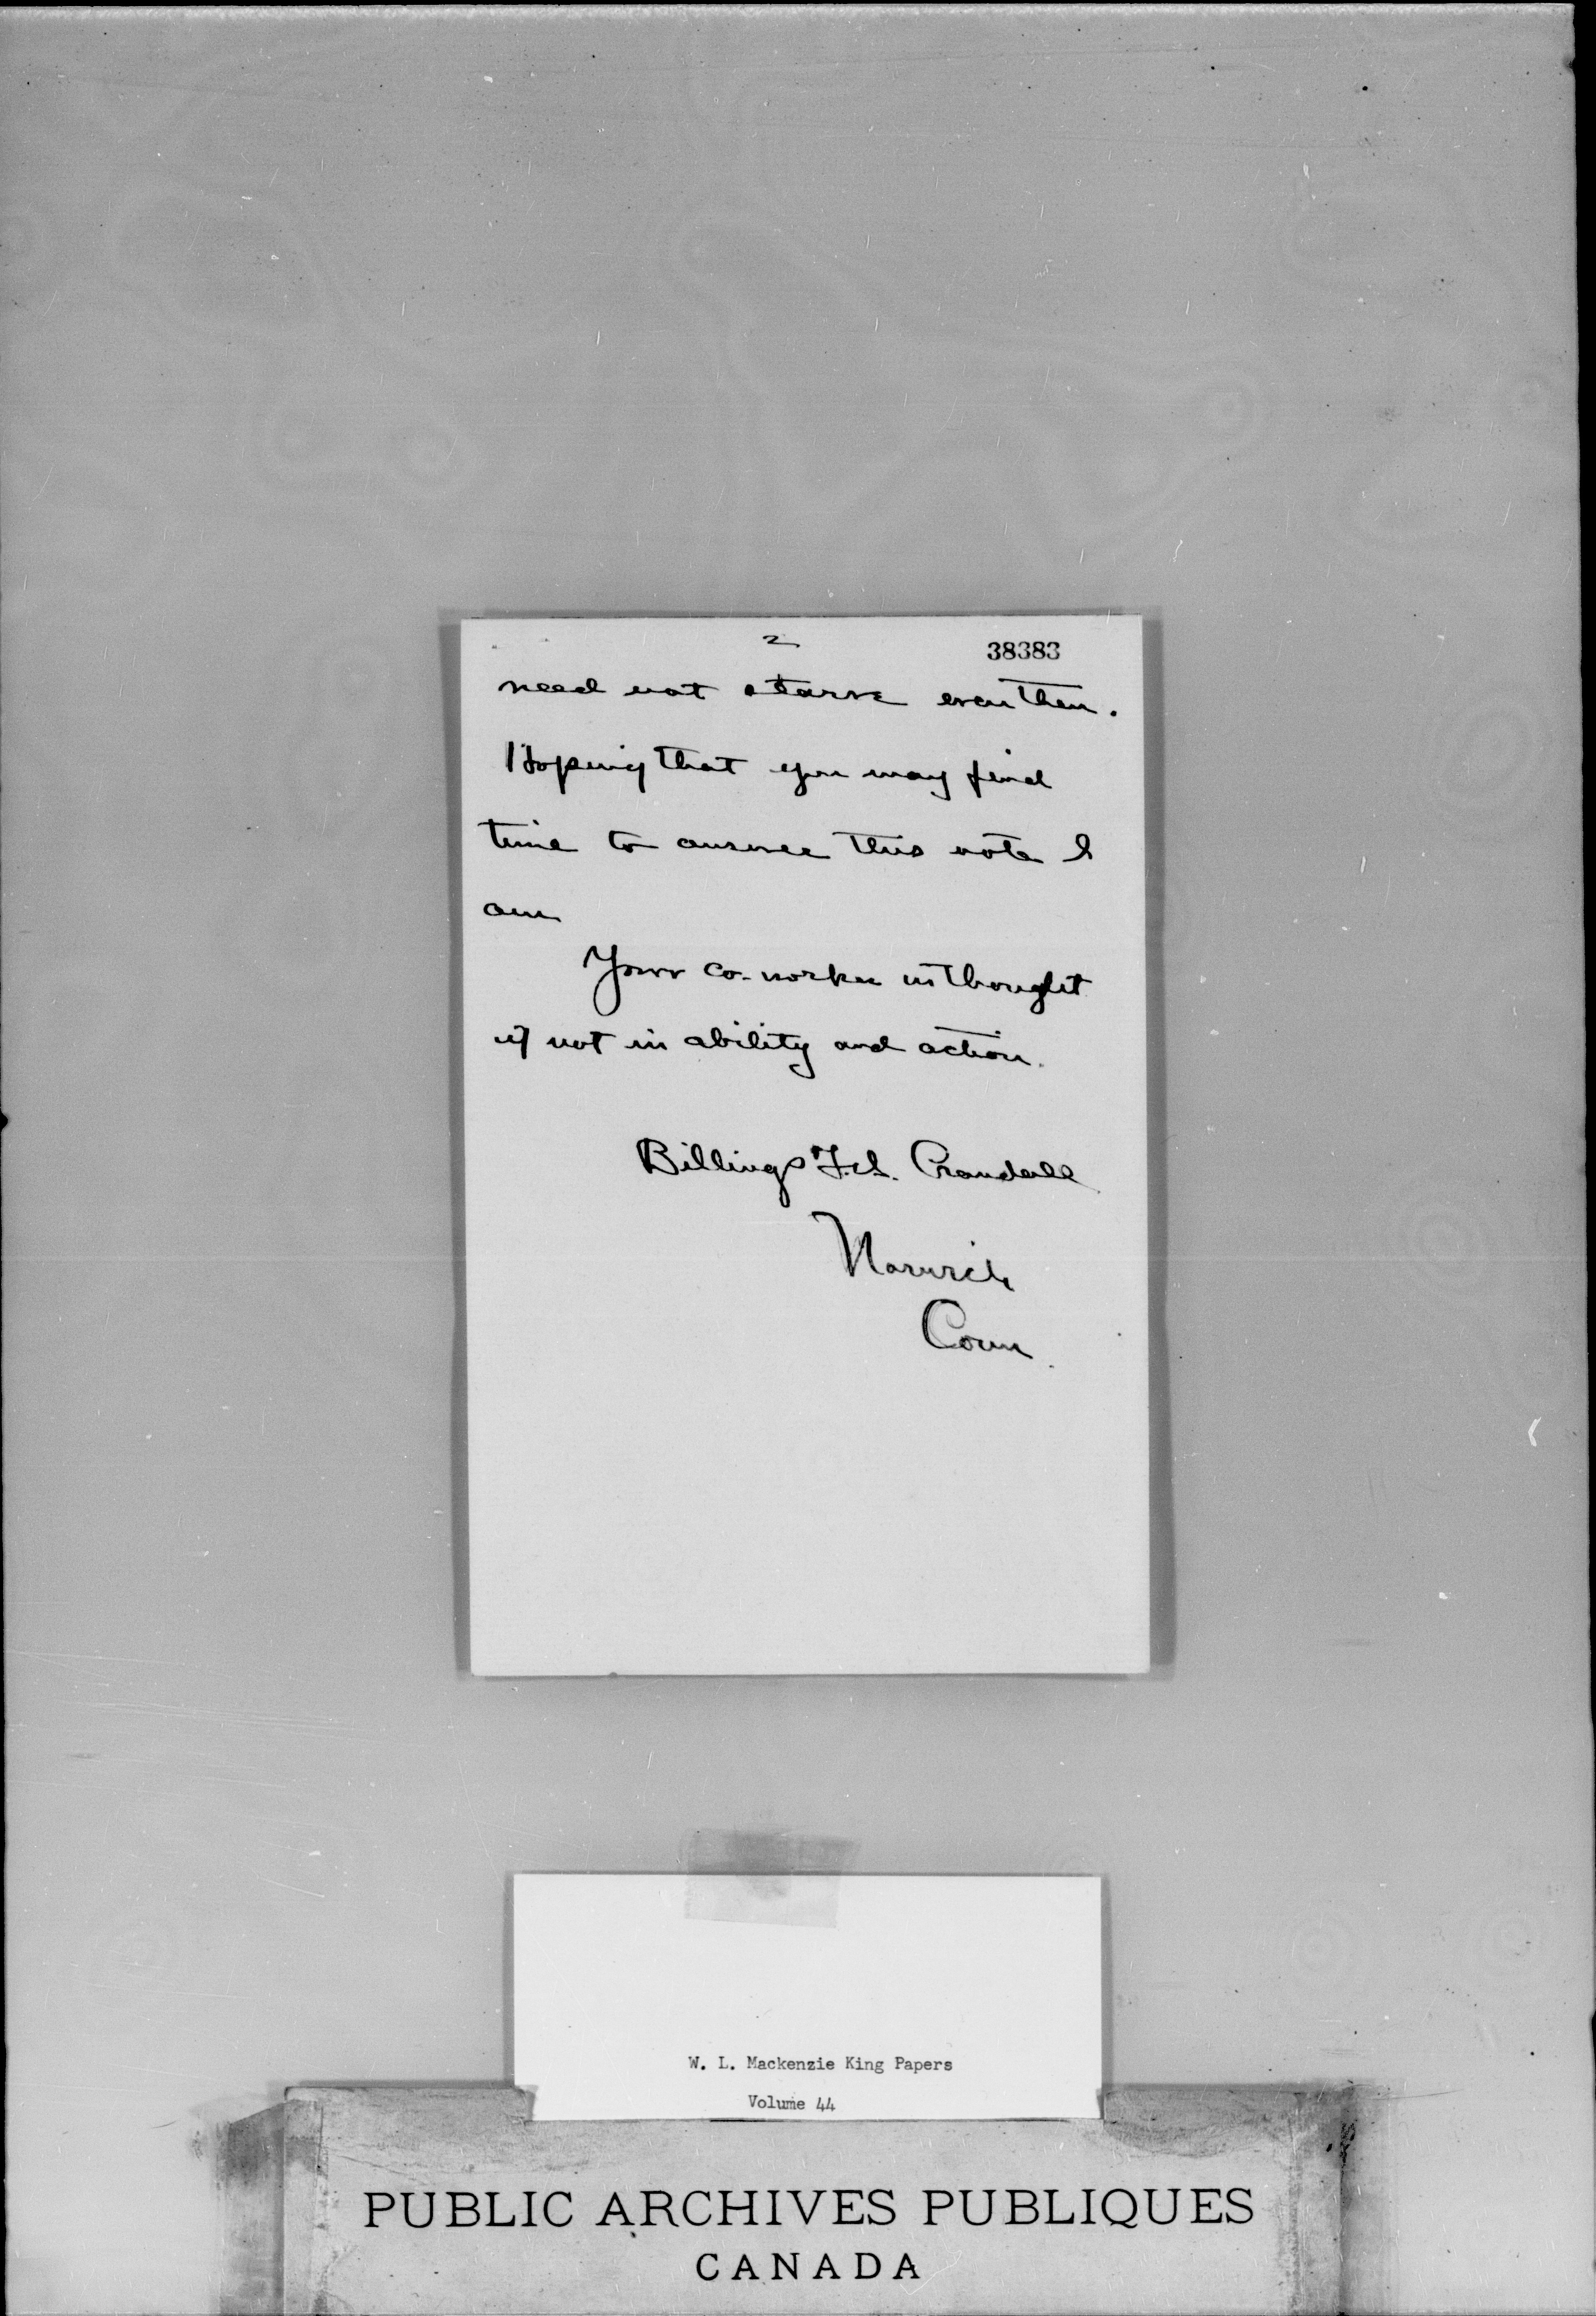 2
38383
need not starve even then.
Hoping that you may find
time to answer this note I
am
Your co-worker in thought
if not in ability and action.
Billings F.H. Crandall
Norwich
Conn.
W. L. Mackenzie King Papers
Volume 44
PUBLIC ARCHIVES PUBLIQUES
CANADA